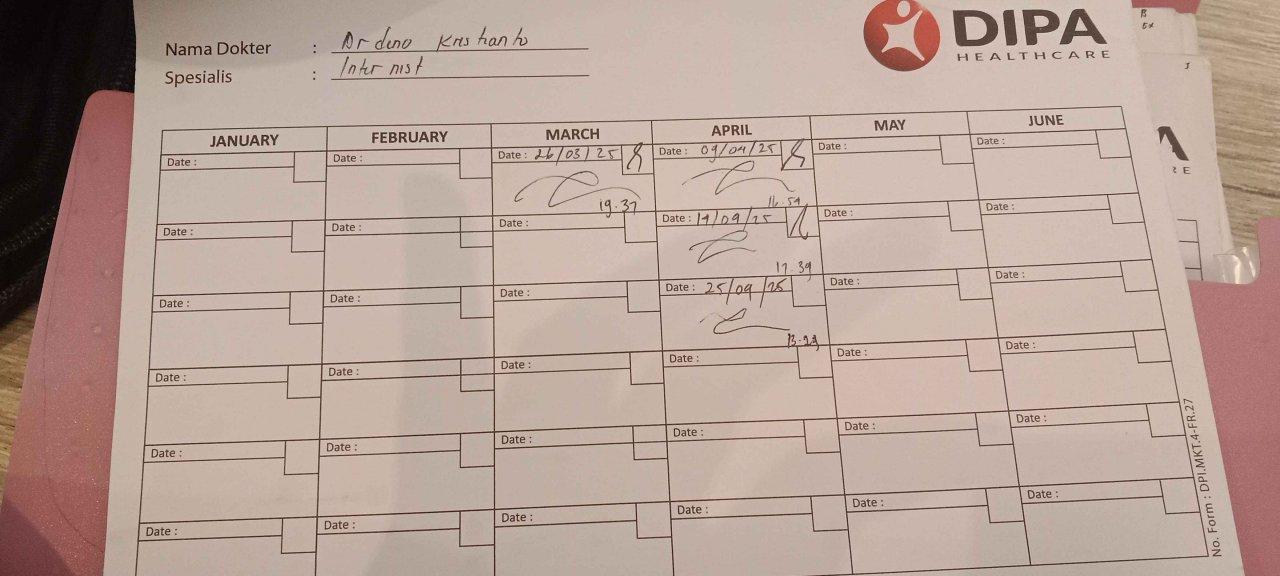 Nama Dokter : Dr deno Kristianto
Spesialis : Internist
DIPA
HEALTHCARE
JANUARY FEBRUARY MARCH APRIL MAY JUNE
Date : Date : Date : 26/03/25 Date : 09/04/25 Date : Date :
19.37 16.59
Date : Date : Date : Date : 14/04/25 Date : Date :
17.39
Date : Date : Date : Date : 25/04/25 Date : Date :
13.29
Date : Date : Date : Date : Date : Date :
Date : Date : Date : Date : Date : Date :
Date : Date : Date : Date : Date : Date :
No. Form : DPI.MKT.4-FR.27